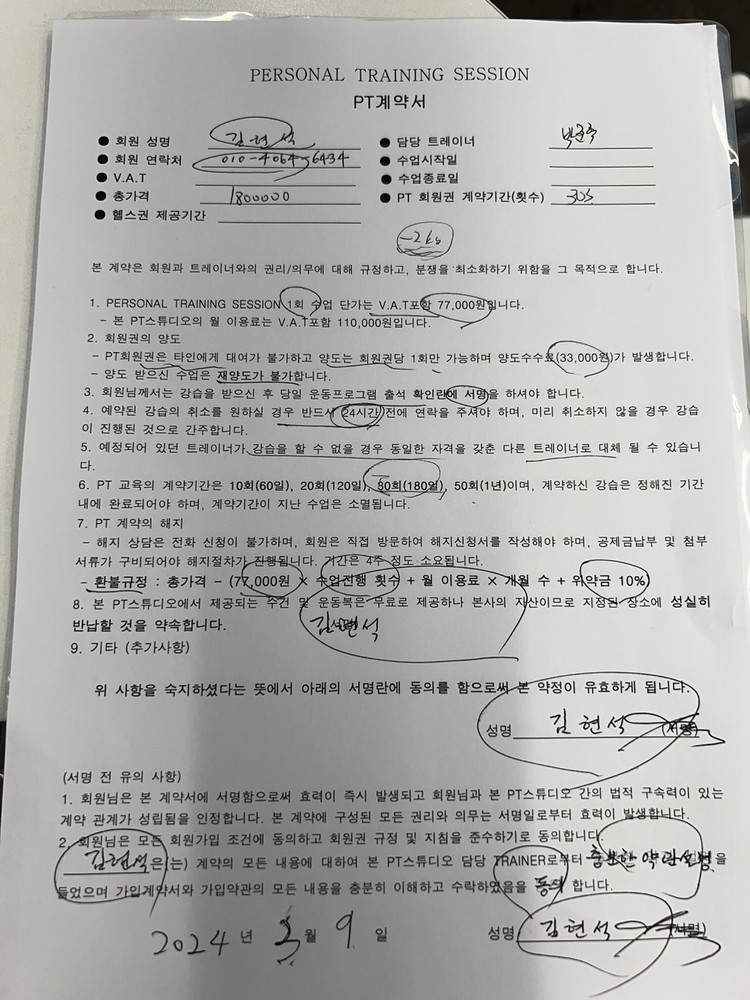 PERSONAL TRAINING SESSION
PT계약서
● 회원 성명 김현석
● 담당 트레이너
● 회원 연락처 010-4064-6434
● 수업시작일
● V.A.T
● 수업종료일
● 총가격 1800000
● PT 회원권 계약기간(횟수) 30S
● 헬스권 제공기간
-2kg
본 계약은 회원과 트레이너와의 권리/의무에 대해 규정하고, 분쟁을 최소화하기 위함을 그 목적으로 합니다.
1. PERSONAL TRAINING SESSION 1회 수업 단가는 V.A.T포함 77,000원입니다.
- 본 PT스튜디오의 월 이용료는 V.A.T포함 110,000원입니다.
2. 회원권의 양도
- PT회원권은 타인에게 대여가 불가하고 양도는 회원권당 1회만 가능하며 양도수수료(33,000원)가 발생합니다.
- 양도 받으신 수업은 재양도가 불가합니다.
3. 회원님께서는 강습을 받으신 후 당일 운동프로그램 출석 확인란에 서명을 하셔야 합니다.
4. 예약된 강습의 취소를 원하실 경우 반드시 24시간 전에 연락을 주셔야 하며, 미리 취소하지 않을 경우 강습
이 진행된 것으로 간주합니다.
5. 예정되어 있던 트레이너가 강습을 할 수 없을 경우 동일한 자격을 갖춘 다른 트레이너로 대체 될 수 있습니
다.
6. PT 교육의 계약기간은 10회(60일), 20회(120일), 30회(180일), 50회(1년)이며, 계약하신 강습은 정해진 기간
내에 완료되어야 하며, 계약기간이 지난 수업은 소멸됩니다.
7. PT 계약의 해지
- 해지 상담은 전화 신청이 불가하며, 회원은 직접 방문하여 해지신청서를 작성해야 하며, 공제금납부 및 첨부
서류가 구비되어야 해지절차가 진행됩니다. 기간은 4주 정도 소요됩니다.
- 환불규정 : 총가격 - (77,000원 × 수업진행 횟수 + 월 이용료 × 개월 수 + 위약금 10%)
8. 본 PT스튜디오에서 제공되는 수건 및 운동복은 무료로 제공하나 본사의 자산이므로 지정된 장소에 성실히
반납할 것을 약속합니다.
김현석
9. 기타 (추가사항)
위 사항을 숙지하셨다는 뜻에서 아래의 서명란에 동의를 함으로써 본 약정이 유효하게 됩니다.
성명 김현석 (서명)
(서명 전 유의 사항)
1. 회원님은 본 계약서에 서명함으로써 효력이 즉시 발생되고 회원님과 본 PT스튜디오 간의 법적 구속력이 있는
계약 관계가 성립됨을 인정합니다. 본 계약에 구성된 모든 권리와 의무는 서명일로부터 효력이 발생합니다.
2. 회원님은 모든 회원가입 조건에 동의하고 회원권 규정 및 지침을 준수하기로 동의합니다.
김현석은(는) 계약의 모든 내용에 대하여 본 PT스튜디오 담당 TRAINER로부터 충분한 약관설명을
들었으며 가입계약서와 가입약관의 모든 내용을 충분히 이해하고 수락하였음을 동의 합니다.
2024 년 3 월 9 일
성명 김현석 (서명)